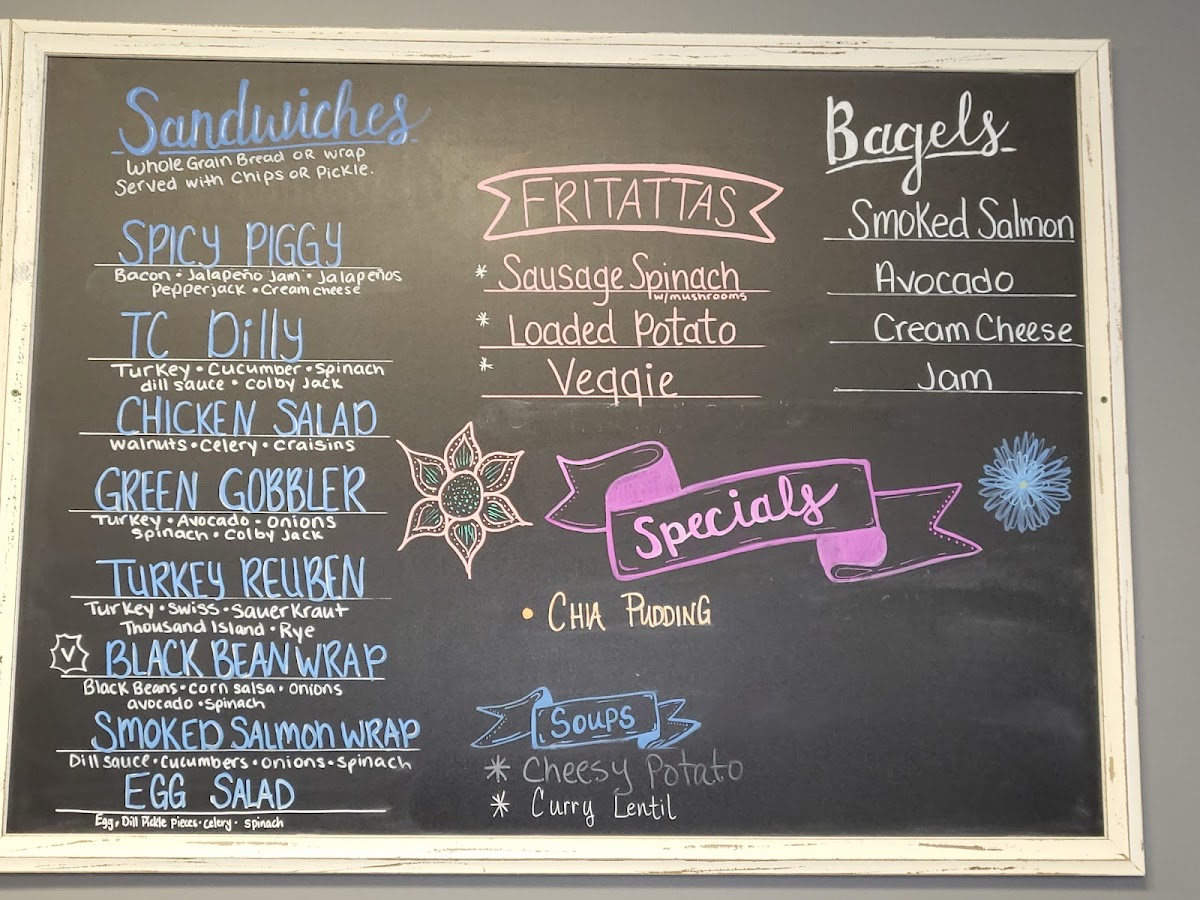 Sandwiches
Whole Grain Bread OR wrap
Served with Chips OR Pickle.
SPICY PIGGY
Bacon • Jalapeño Jam • Jalapeños
Pepperjack • Cream cheese
TC Dilly
Turkey • Cucumber • Spinach
dill sauce • Colby Jack
CHICKEN SALAD
Walnuts • Celery • Craisins
GREEN GOBBLER
Turkey • Avocado • Onions
Spinach • Colby Jack
TURKEY REUBEN
Turkey • Swiss • Sauerkraut
Thousand Island • Rye
V BLACK BEAN WRAP
Black Beans • Corn salsa • Onions
avocado • spinach
SMOKED SALMON WRAP
Dill sauce • Cucumbers • Onions • Spinach
EGG SALAD
Egg, Dill Pickle Pieces • celery • spinach
FRITATTAS
* Sausage Spinach
w/mushrooms
* Loaded Potato
* Veggie
Bagels
Smoked Salmon
Avocado
Cream Cheese
Jam
Specials
• CHIA PUDDING
Soups
* Cheesy Potato
* Curry Lentil